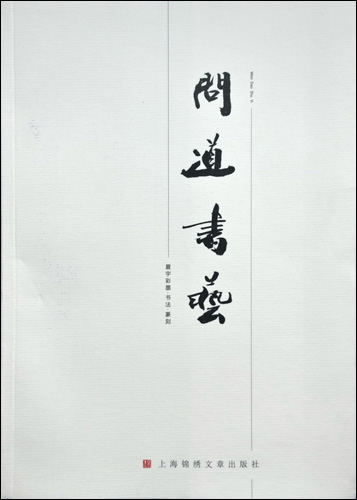 問道書藝
Wen Dao Shu Yi
夏宇彩墨 书法 篆刻
上海锦绣文章出版社